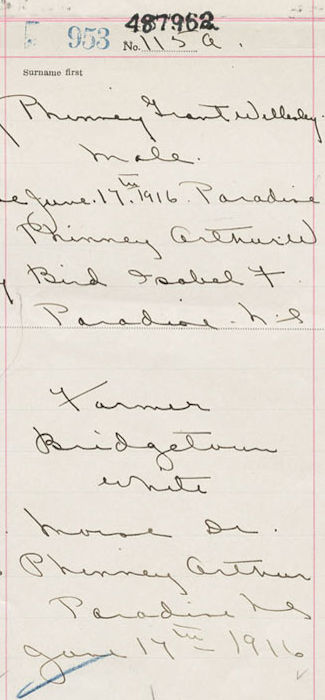 487962
953 No. 113 a.
Surname first
Phinney Grant Wellesley.
Male.
June. 17th. 1916. Paradise
Phinney Arthur W
Bird Isabel F.
Paradise. N.S
Farmer
Bridgetown
White
Morse Dr.
Phinney Arthur
Paradise N.S
June 17th 1916